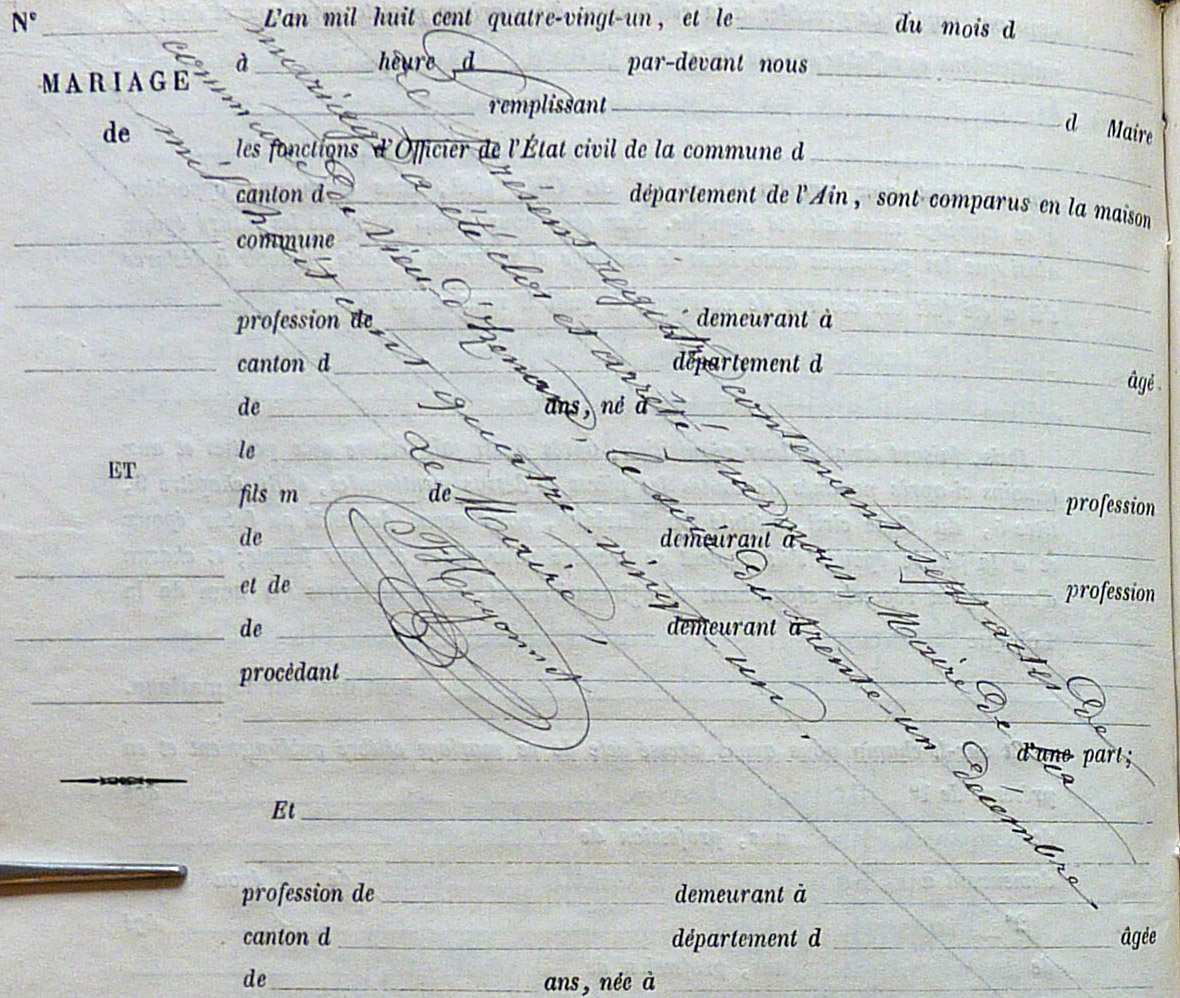 N°
L'an mil huit cent quatre-vingt-un, et le du mois d
MARIAGE
à heure d par-devant nous
remplissant d Maire
de
les fonctions d'Officier de l'État civil de la commune d
canton d département de l'Ain, sont comparus en la maison
commune
profession de demeurant à
canton d département d âgé
de ans, né à
le
ET
fils m de profession
de demeurant à
et de profession
de demeurant à
procédant
d'une part;
Et
profession de demeurant à
canton d département d âgée
de ans, née à
Le présent registre contenant sept actes de
mariage a été clos et arrêté par nous, Maire de la
commune de Vieu-d'Izenave, le soir du trente-un décembre
mil huit cent quatre-vingt-un.
Le Maire,
Hugonnet